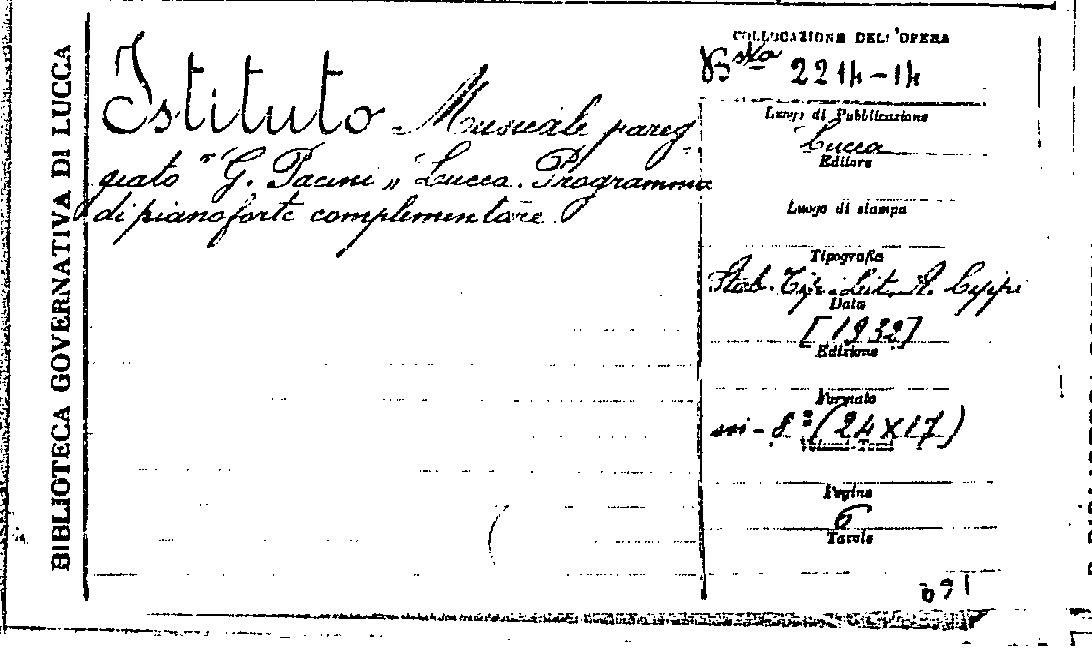 BIBLIOTECA GOVERNATIVA DI LUCCA
Istituto Musicale pareg-
giato "G. Pacini" Lucca. Programma
di pianoforte complementare.
COLLOCAZIONE DELL'OPERA
Bsta 2214-14
Luogo di Pubblicazione
Lucca
Editore
Luogo di stampa
Tipografia
Stab. Tip. Lit. A. Cippi
Data
[1932]
Edizione
Formato
in-8º (24X17)
Volumi-Tomi
Pagine
6
Tavole